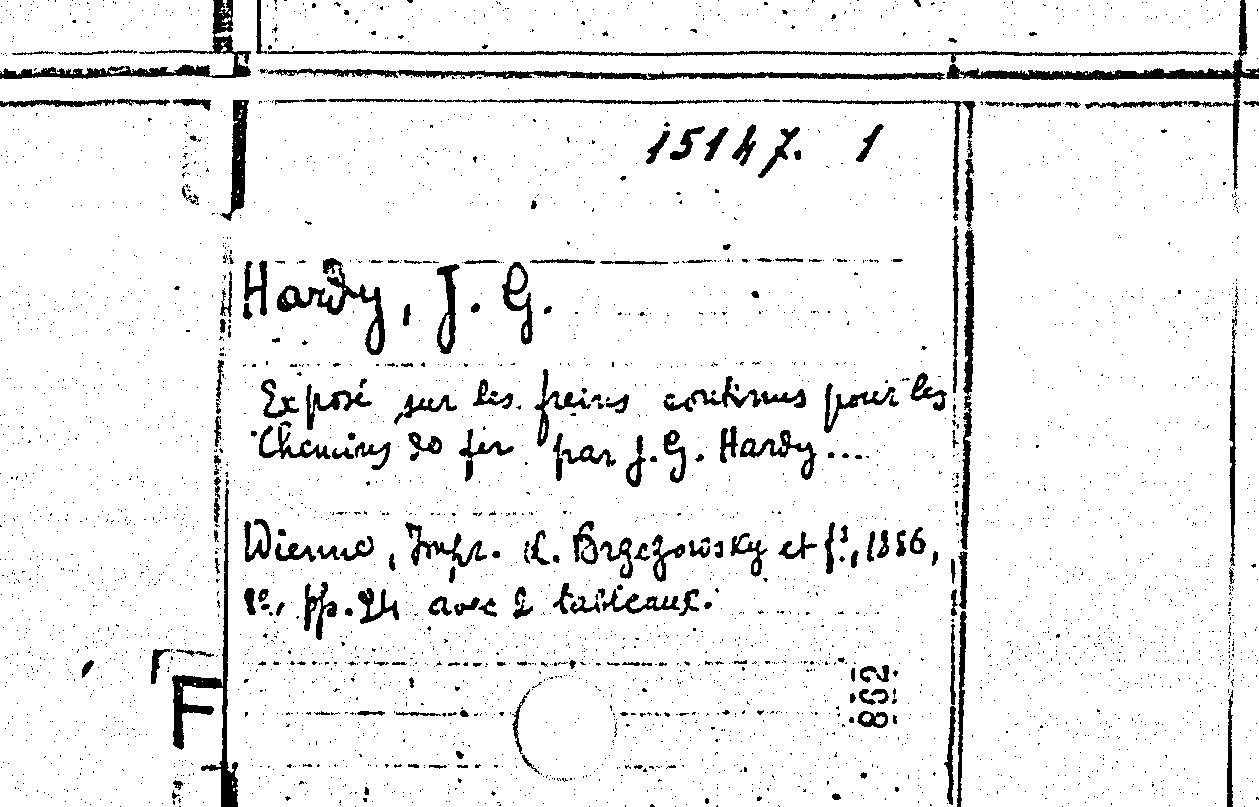 15147. 1
Hardy, J. G.
Exposé sur les freins continus pour les
Chemins de fer par J. G. Hardy...
Vienne, Impr. L. Brzezowsky et f.s, 1886,
8o., pp. 24 avec 2 tableaux.
862
F